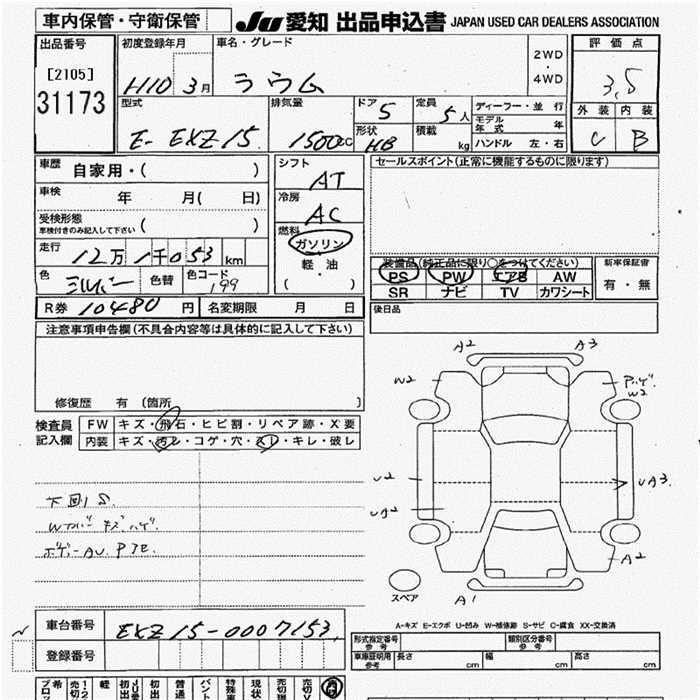 車内保管・守衛保管
JU 愛知 出品申込書 JAPAN USED CAR DEALERS ASSOCIATION
出品番号 初度登録年月 車名・グレード 2WD ・ 4WD 評価点
[2105] H10 3月 ラウム 3.5
31173
型式 排気量 ドア 5 定員 5人 ディーラー・並行 外装 内装
E- EXZ15. 1500cc 形状 HB 積載 kg モデル年式 年 C B
ハンドル 左・右
車歴 自家用・( ) シフト AT セールスポイント(正常に機能するものに限ります)
車検 年 月( 日) 冷房 AC
受検形態 車検付きのみ記入して下さい 燃料 ガソリン
走行 12万 1千053 km ・
色 シルバー 色替 色コード 199 (軽・油)
装備品(純正品に限り○をつけてください) 新車保証書
PS PW エアB AW 有・無
SR ナビ TV カワシート
R券 10480 円 名変期限 月 日 後日品
注意事項申告欄(不具合内容等は具体的に記入して下さい)
修復歴 有 (箇所 )
検査員記入欄 FW キズ・飛石・ヒビ割・リペア跡・X要
内装 キズ・汚レ・コゲ・穴・スレ・キレ・破レ
A2 A3
W2 W2
U2 UA3
UA2 A2
スペア A1
下回りS.
ボデーAU.
A-キズ E-エクボ U-凹み W-補修跡 S-サビ C-腐食 XX-交換済
車台番号 EXZ15-0007153
登録番号
形式指定番号 参考 類別区分番号 参考
車庫証明用 参考 長さ cm 幅 cm 高さ cm